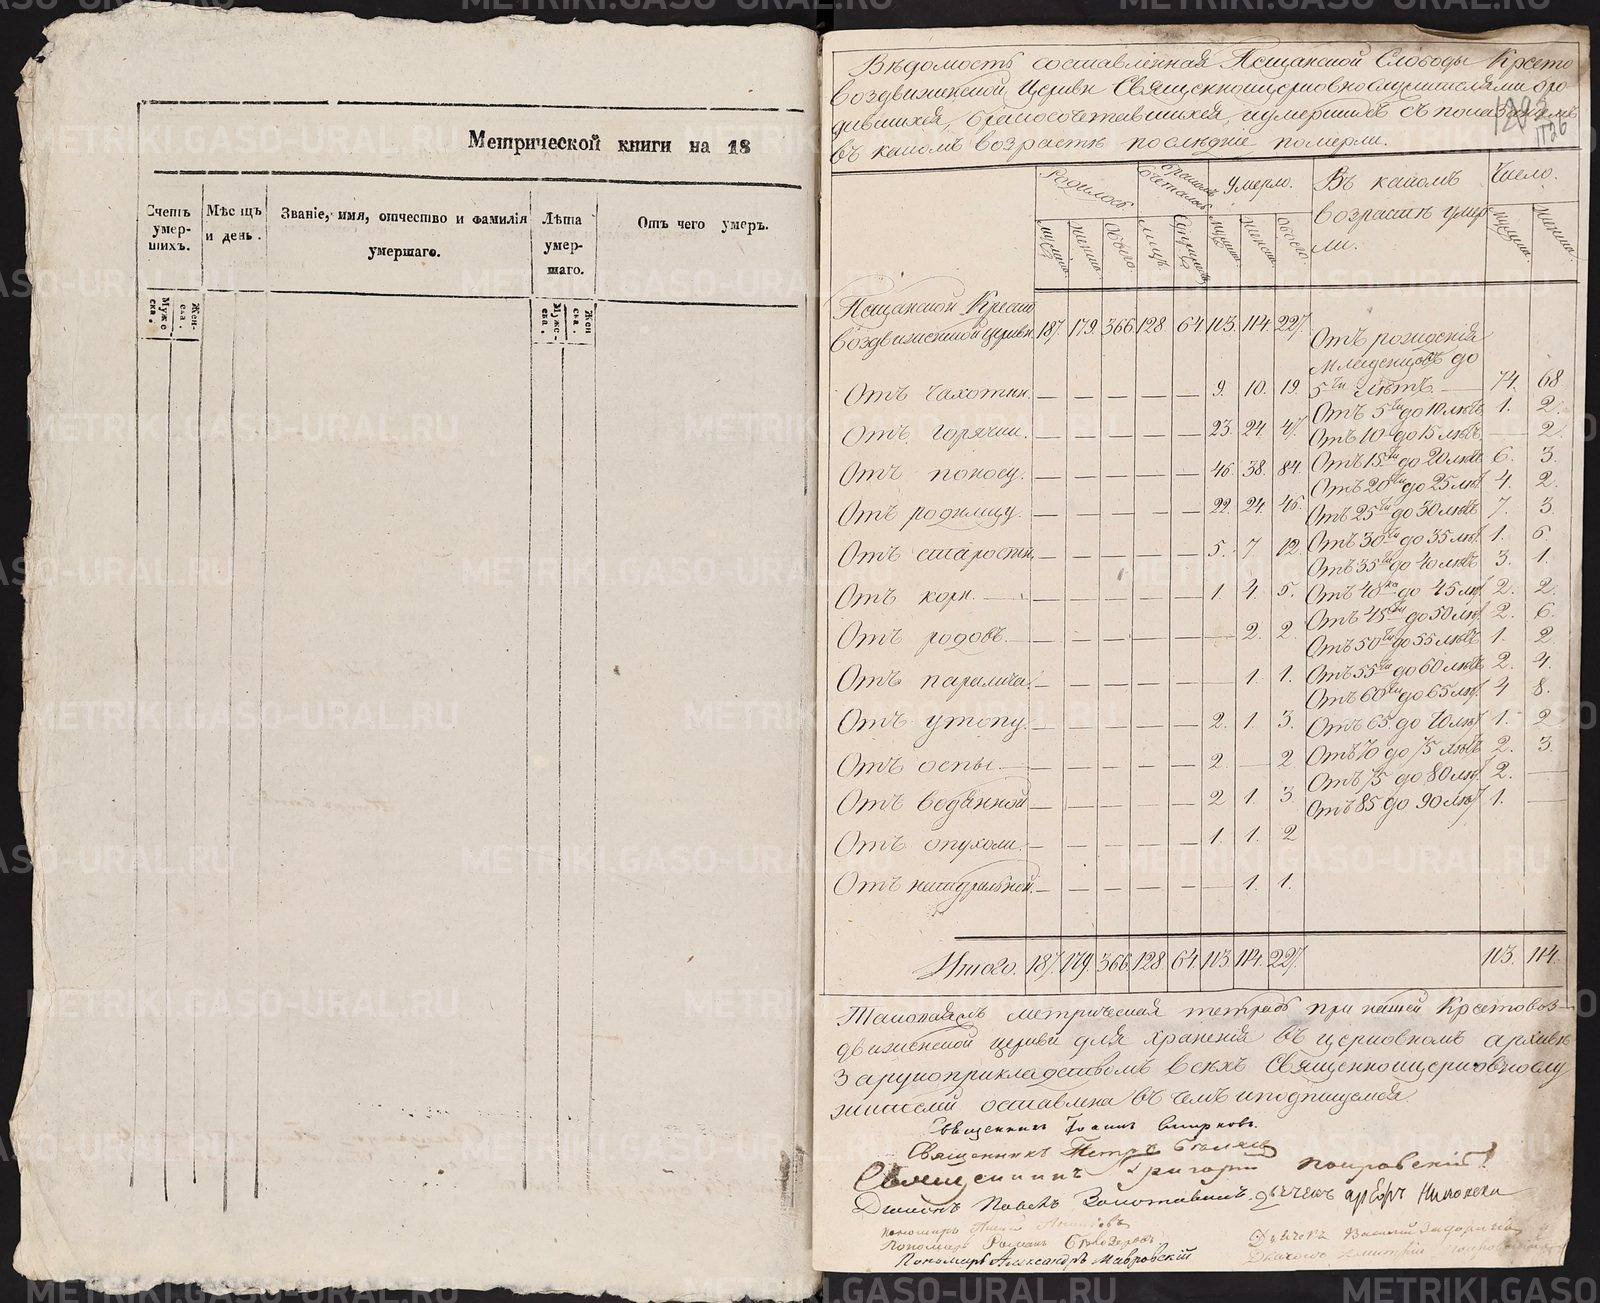 Метрической книги на 18
Счетъ умер-шихъ.
Мѣсяцъ и день.
Званіе, имя, отчество и фамилія умершаго.
Лѣта умер-шаго.
Отъ чего умеръ.
Муже-ска.
Жен-ска.
Муже-ска.
Жен-ска.
Вѣдомость составленная Пещанской Слободы Кресто
воздвиженской Церкви Священноцерковнослужителями о ро
дившихся, бракосочетавшихся, и умершихъ съ показаніемъ
въ какомъ возрастѣ послѣдніе померли.
1136
Родилось.
Умерло.
Въ какомъ возрастѣ умер ли.
Число.
Пещанской Кресто
воздвиженской церкви 187. 179. 366. 128 64. 113. 114. 227.
Отъ чахотки. — — — — — 9. 10. 19
Отъ горячки. — — — — — 23. 24. 47.
Отъ поносу. — — — — — 46. 38. 84.
Отъ родимцу. — — — — — 22. 24. 46.
Отъ старости. — — — — — 5. 7. 12.
Отъ кори. — — — — — 1. 4. 5.
Отъ родовъ. — — — — — — 2. 2.
Отъ паралича. — — — — — — 1. 1.
Отъ утопу. — — — — — 2. 1. 3.
Отъ оспы. — — — — — 2. — 2
Отъ водянной — — — — — 2 1. 3.
Отъ опухоли. — — — — — 1. 1. 2
Отъ натуральной. — — — — — — 1. 1.
Отъ рожденія
младенцовъ до
5ти лѣтъ — 74. 68
Отъ 5ти до 10 лѣтъ 1. 2.
Отъ 10 до 15 лѣтъ — 2.
Отъ 15ти до 20 лѣтъ 6. 3.
Отъ 20ти до 25 лѣт 4. 2.
Отъ 25ти до 30 лѣтъ 7. 3.
Отъ 30ти до 35 лѣт 1. 6.
Отъ 35ти до 40 лѣтъ 3. 1.
Отъ 40ка до 45 лѣт 2. 2.
Отъ 45ти до 50 лѣт 2. 6.
Отъ 50ти до 55 лѣтъ 1. 2
Отъ 55ти до 60 лѣтъ 2. 4.
Отъ 60ти до 65 лѣт 4 8.
Отъ 65 до 70 лѣт 1. 2
Отъ 70 до 75 лѣтъ 2. 3.
Отъ 75 до 80 лѣт 2. —
Отъ 85 до 90 лѣт 1. —
Итого. 187. 179. 366. 128. 64. 113. 114. 227. 113. 114.
Таковаясъ метрическая тетрадь при нашей Крестовоз-
движенской церкви для храненія въ церковномъ архивѣ
За рукоприкладствомъ всехъ Священноцерковнослу
жителей оставлена въ чемъ и подпишемся.
Священникъ Іоаннъ Смирновъ.
Священникъ Петръ
Священникъ Григорій Покровскій
Діаконъ Павелъ
Пономарь
Пономарь Романъ
Пономарь Александръ Мавровскій
Дьячокъ Василій
METRIKI.GASO-URAL.RU